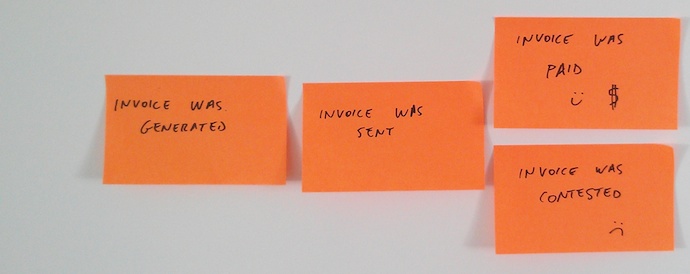 INVOICE WAS
GENERATED
INVOICE WAS
SENT
INVOICE WAS
PAID
:) $
INVOICE WAS
CONTESTED
:(